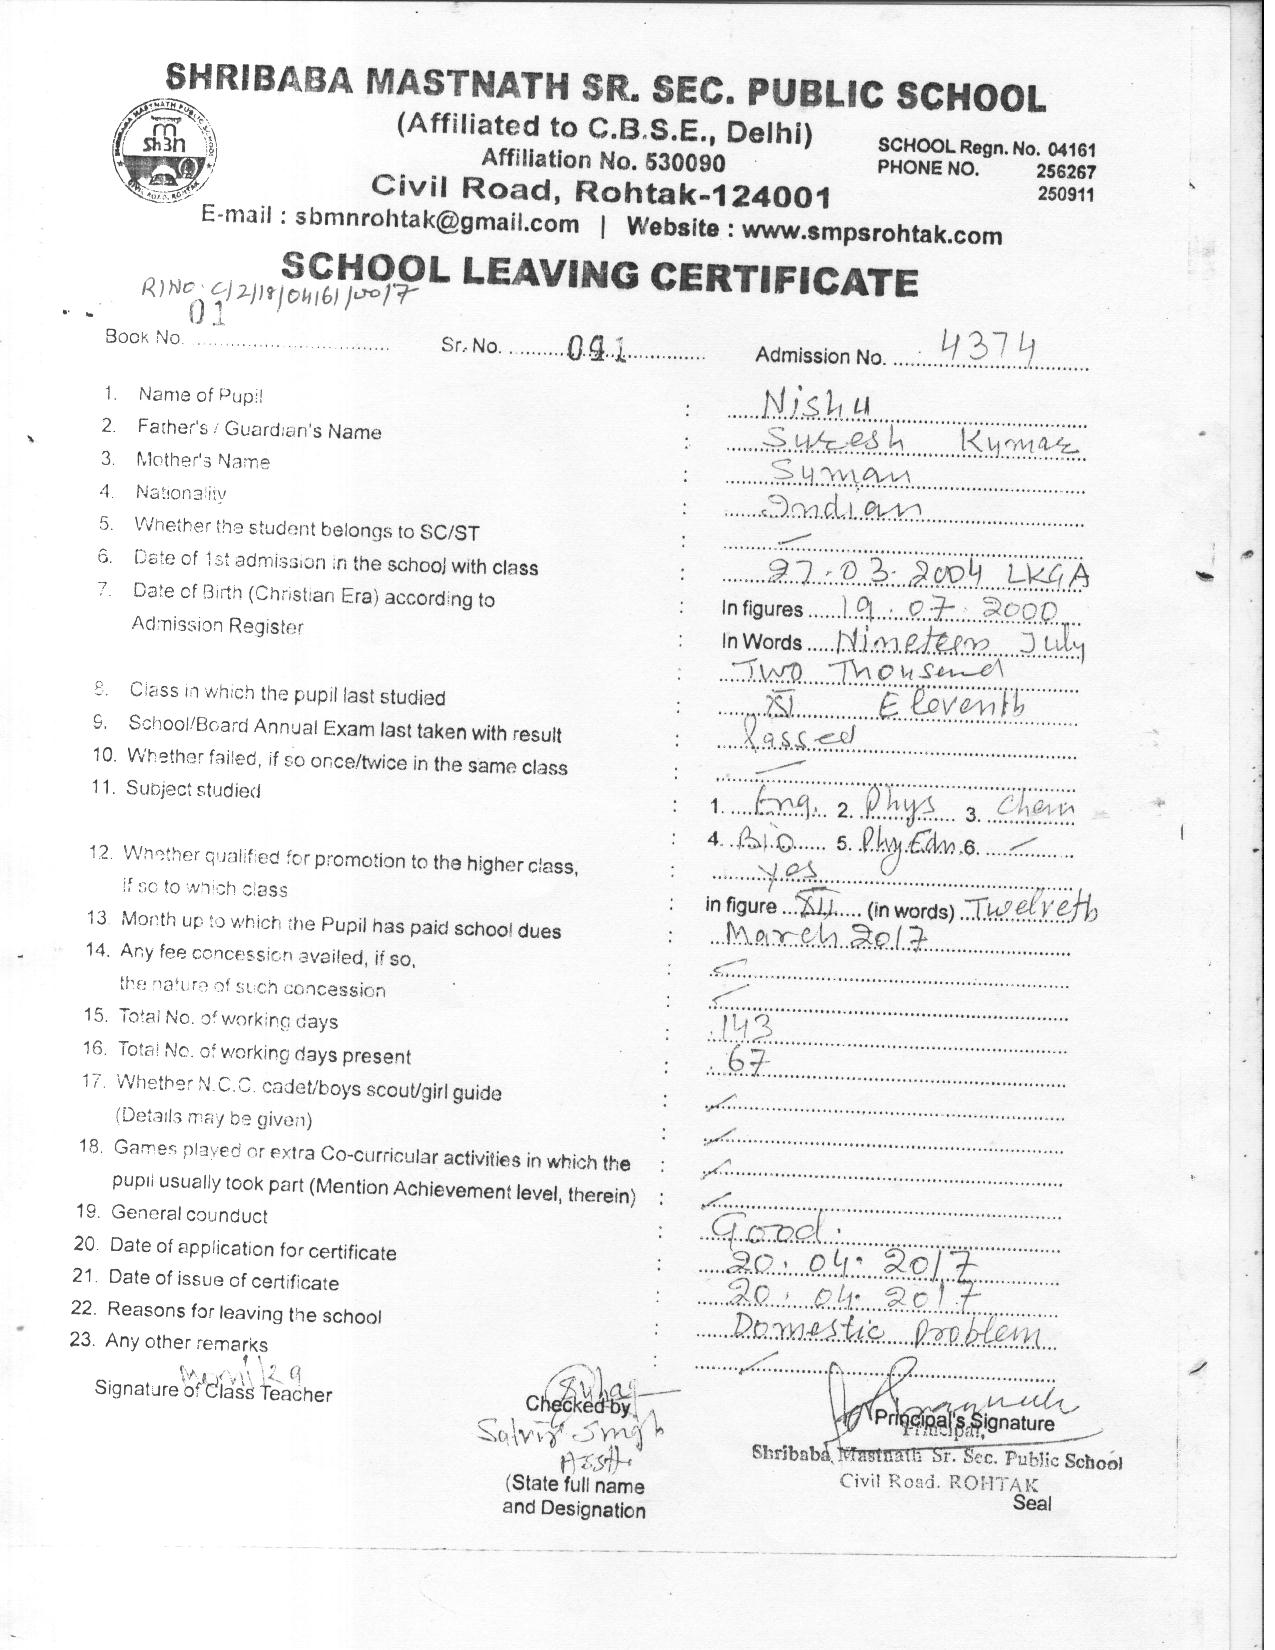 SHRIBABA MASTNATH SR. SEC. PUBLIC SCHOOL
(Affiliated to C.B.S.E., Delhi)
Affiliation No. 530090
SCHOOL Regn. No. 04161
PHONE NO. 256267
250911
Civil Road, Rohtak-124001
E-mail : sbmnrohtak@gmail.com | Website : www.smpsrohtak.com
SCHOOL LEAVING CERTIFICATE
R)NO. C/2/18/04161/0017
Book No. 01 Sr. No. 091 Admission No. 4374
1. Name of Pupil : Nishu
2. Father's / Guardian's Name : Suresh Kumar
3. Mother's Name : Suman
4. Nationality : Indian
5. Whether the student belongs to SC/ST :
6. Date of 1st admission in the school with class : 27.03.2004 LKGA
7. Date of Birth (Christian Era) according to : In figures 19.07.2000
Admission Register : In Words Nineteen July
Two Thousend
8. Class in which the pupil last studied : XI Eleventh
9. School/Board Annual Exam last taken with result : Passed
10. Whether failed, if so once/twice in the same class :
11. Subject studied : 1. Eng. 2. Phys 3. Chem
4. Bio 5. Phy.Edn. 6.
12. Whether qualified for promotion to the higher class, : yes
if so to which class : in figure XII (in words) Twelveth
13 Month up to which the Pupil has paid school dues : March 2017
14. Any fee concession availed, if so,
the nature of such concession
15. Total No. of working days : 143
16. Total No. of working days present : 67
17. Whether N.C.C. cadet/boys scout/girl guide
(Details may be given)
18. Games played or extra Co-curricular activities in which the :
pupil usually took part (Mention Achievement level, therein) :
19. General counduct : Good.
20. Date of application for certificate : 20.04.2017
21. Date of issue of certificate : 20.04.2017
22. Reasons for leaving the school : Domestic Problem
23. Any other remarks :
Signature of Class Teacher
Checked by
Principal's Signature
Principal,
Shribaba Mastnath Sr. Sec. Public School
Civil Road. ROHTAK
Singh
(State full name
and Designation
Seal